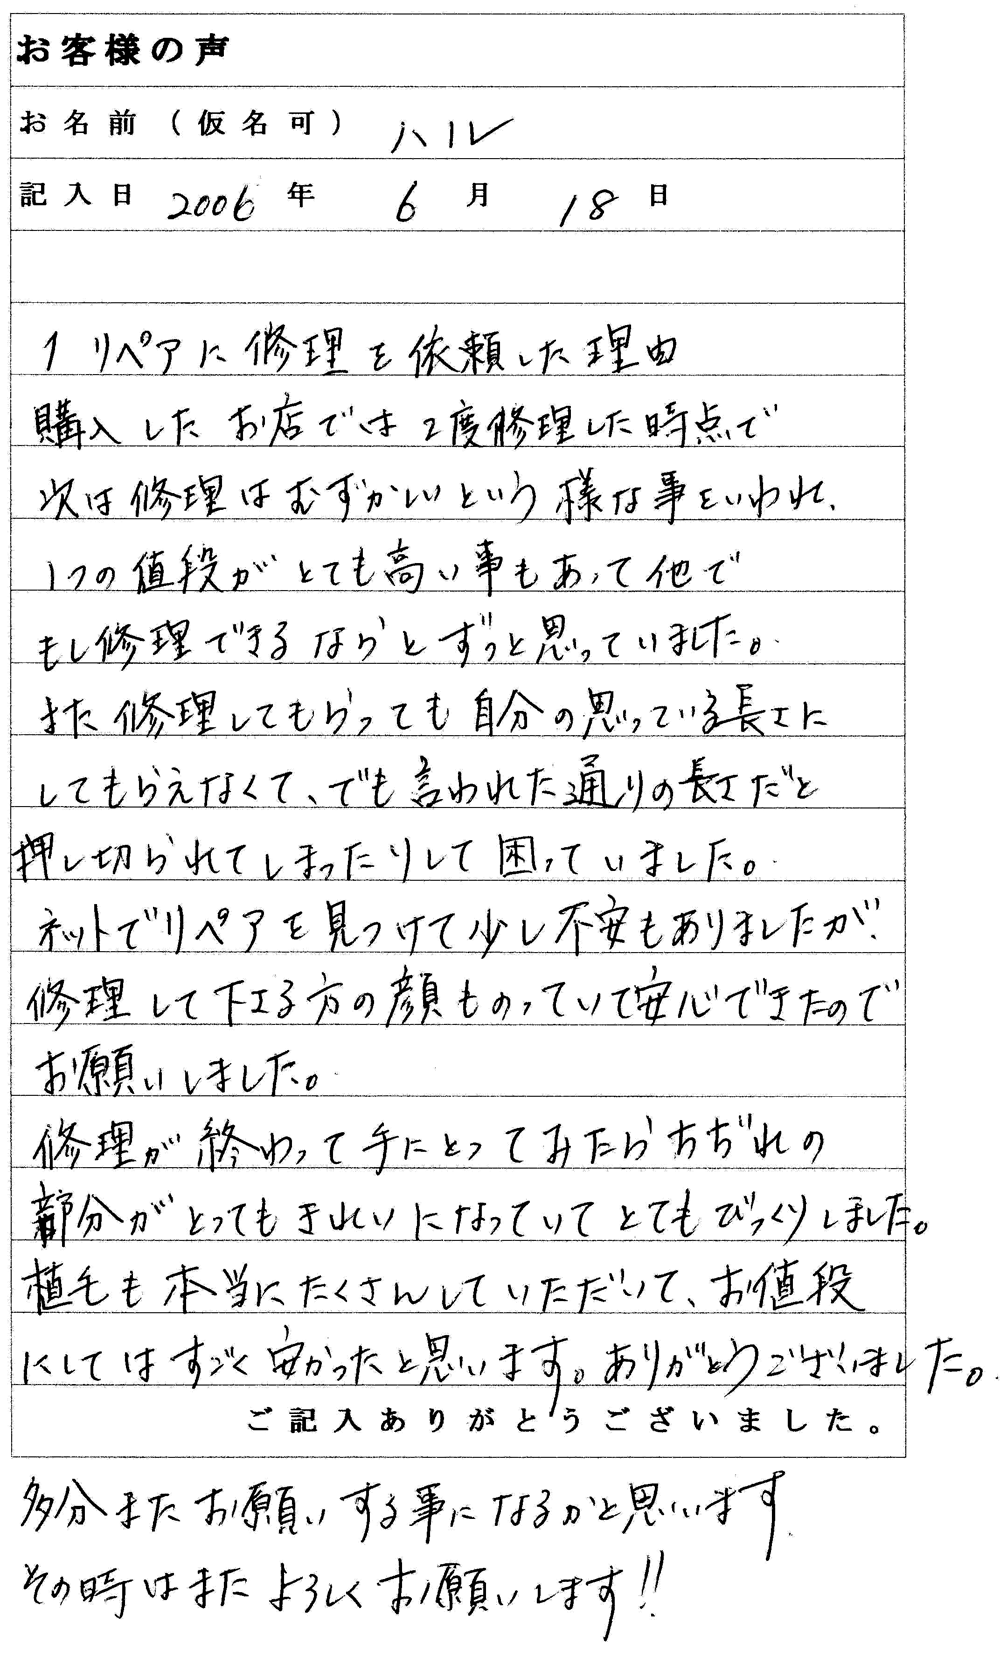 お客様の声
お名前（仮名可） ハル
記入日 2006 年 6 月 18 日
1 リペアに修理を依頼した理由
購入したお店では2度修理した時点で
次は修理はむずかしいという様な事をいわれ、
1つの値段がとても高い事もあって他で
もし修理できるならとずっと思っていました。
また修理してもらっても自分の思っている長さに
してもらえなくて、でも言われた通りの長さだと
押し切られてしまったりして困っていました。
ネットでリペアを見つけて少し不安もありましたが、
修理して下さる方の顔ものっていて安心できたので
お願いしました。
修理が終わって手にとってみたらちぢれの
部分がとってもきれいになっていてとてもびっくりしました。
植毛も本当にたくさんしていただいて、お値段
にしてはすごく安かったと思います。ありがとうございました。
ご記入ありがとうございました。
多分またお願いする事になるかと思います
その時はまたよろしくお願いします!!